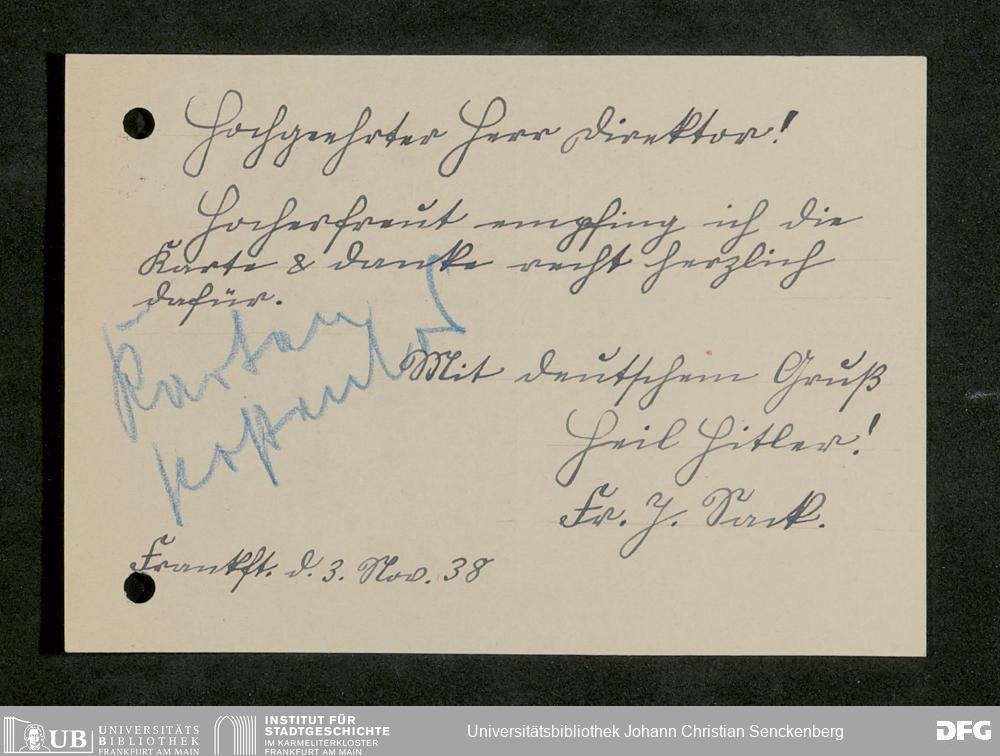 Hochgeehrter Herr Direktor!
Hocherfreut empfing ich die
Karte & danke recht herzlich
dafür.
Karten
Mit deutschem Gruß
Heil Hitler!
Fr. J. Sack.
Frankft. d. 3. Nov. 38
UB UNIVERSITÄTS
BIBLIOTHEK
FRANKFURT AM MAIN
INSTITUT FÜR
STADTGESCHICHTE
IM KARMELITERKLOSTER
FRANKFURT AM MAIN
Universitätsbibliothek Johann Christian Senckenberg
DFG